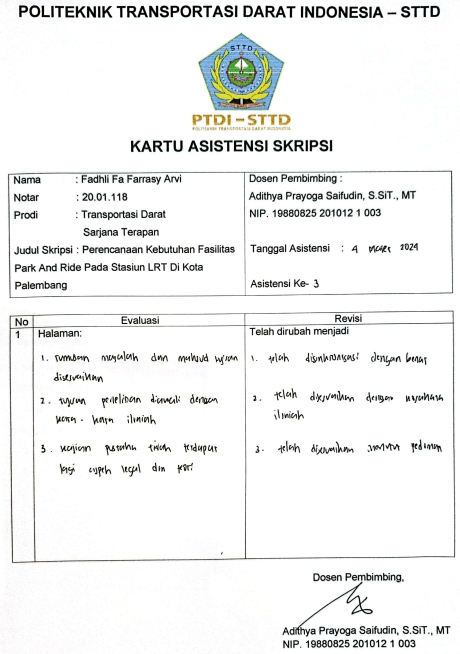 POLITEKNIK TRANSPORTASI DARAT INDONESIA – STTD
STTD
PTDI – STTD
POLITEKNIK TRANSPORTASI DARAT INDONESIA
KARTU ASISTENSI SKRIPSI
Nama : Fadhli Fa Farrasy Arvi
Notar : 20.01.118
Prodi : Transportasi Darat
Sarjana Terapan
Judul Skripsi : Perencanaan Kebutuhan Fasilitas
Park And Ride Pada Stasiun LRT Di Kota
Palembang
Dosen Pembimbing :
Adithya Prayoga Saifudin, S.SiT., MT
NIP. 19880825 201012 1 003
Tanggal Asistensi : 4 Maret 2024
Asistensi Ke- 3
No Evaluasi Revisi
1 Halaman:
1. rumusan masalah dan maksud tujuan
disesuaikan
2. tujuan penelitian diawali dengan
kata - kata ilmiah
3. kajian pustaka tidak terdapat
lagi aspek legal dan teori
Telah dirubah menjadi
1. telah disinkronisasi dengan benar
2. telah disesuaikan dengan
ilmiah
3. telah disesuaikan pedoman
Dosen Pembimbing,
Adithya Prayoga Saifudin, S.SiT., MT
NIP. 19880825 201012 1 003